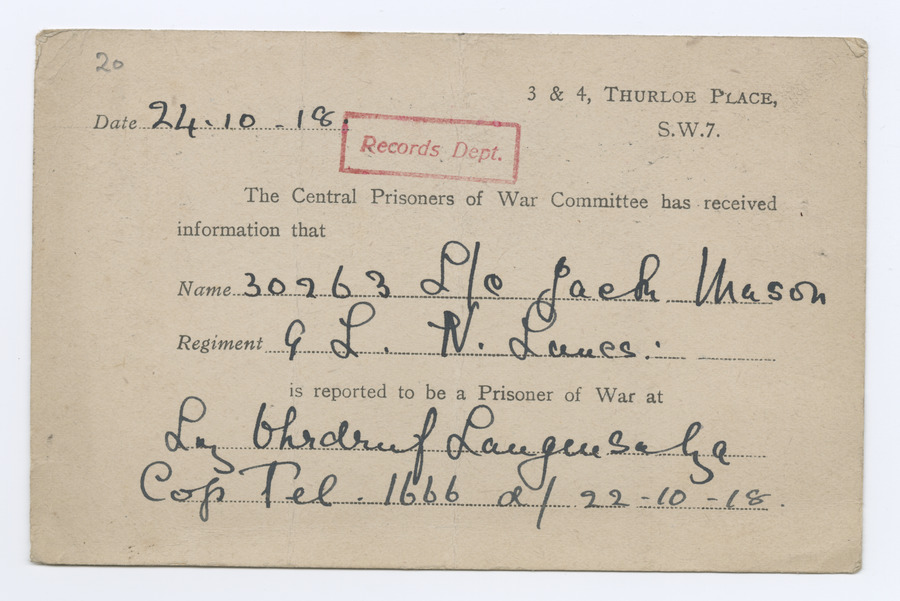 20
3 & 4, THURLOE PLACE,
S.W.7.
Date 24.10-18.
Records Dept.
The Central Prisoners of War Committee has received
information that
Name 30263 L/c Jack Mason
Regiment 9 L. N. Lancs:
is reported to be a Prisoner of War at
Lag Ohrdruf Langensalza
Cop Tel. 1666 d/ 22-10-18.